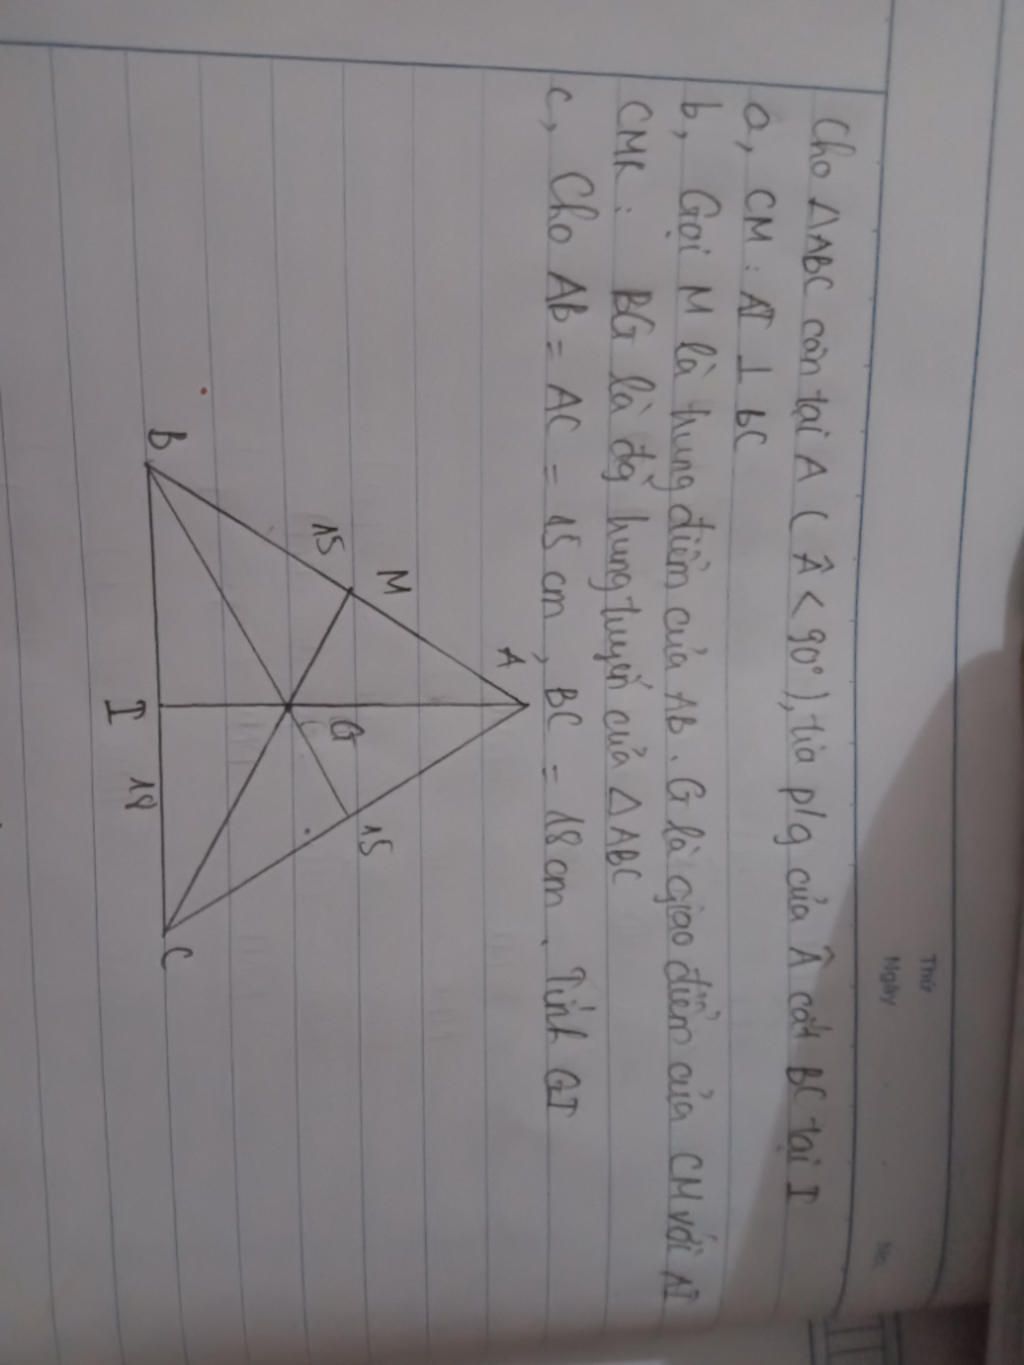 Thứ
Ngày
No.
Cho △ABC cân tại A ( Â < 90° ), tia p/g của Â cắt BC tại I
a, CM : AI ⊥ BC
b, Gọi M là trung điểm của AB. G là giao điểm của CM với AI
CMR : BG là đg trung tuyến của △ABC
c, Cho AB = AC = 15 cm, BC = 18 cm. Tính GI
A
M
15
15
G
B
I
18
C